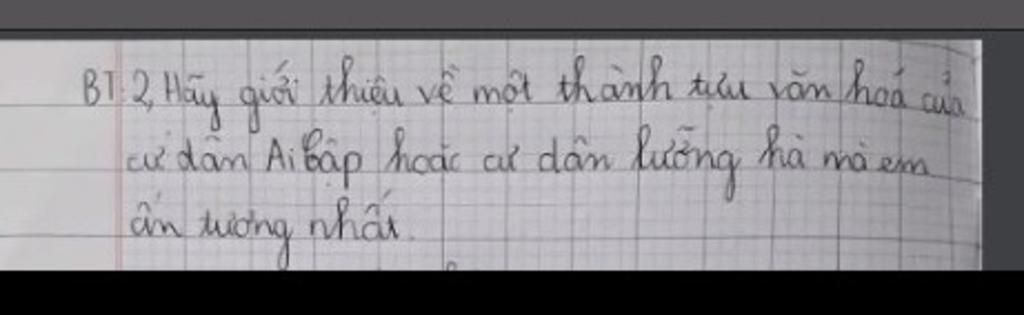 BT 2, Hãy giới thiệu về một thành tựu văn hoá của
cư dân Ai Cập hoặc cư dân lưỡng hà mà em
ấn tượng nhất.